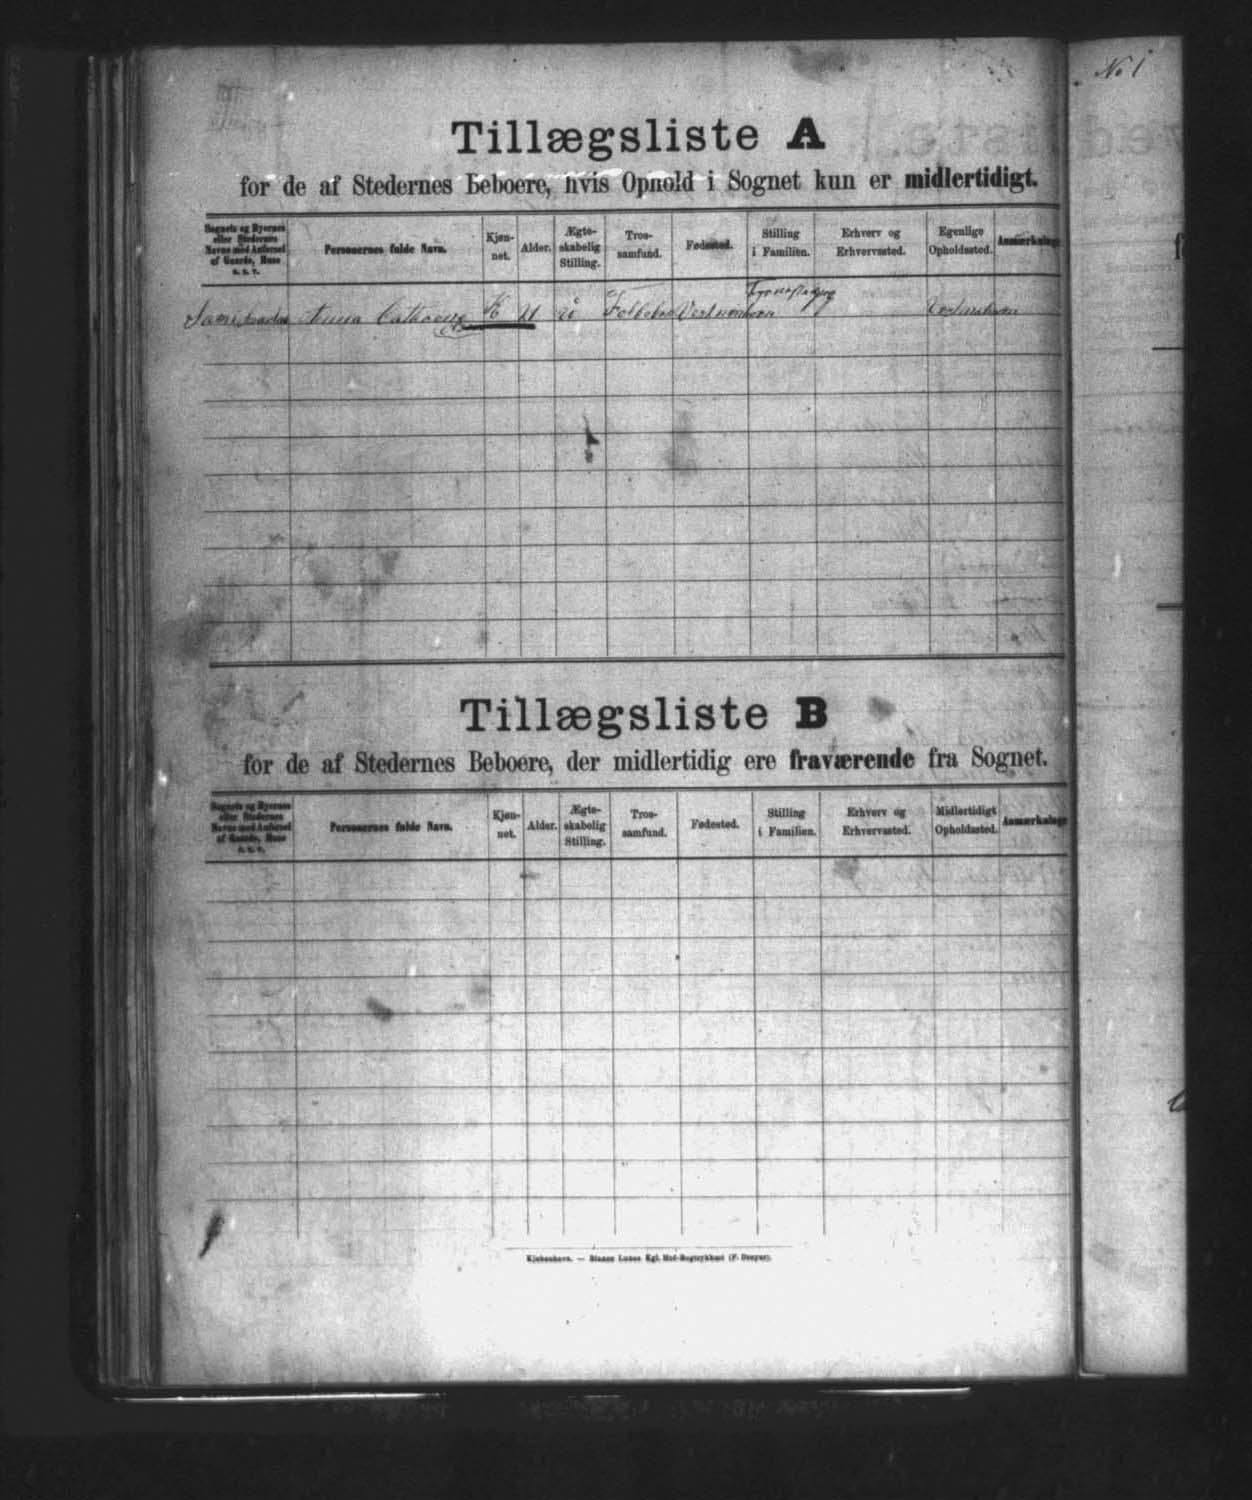 No 1
Tillægsliste A
for de af Stedernes Beboere, hvis Ophold i Sognet kun er midlertidigt.
Sognets og Byernes eller Stedernes Navne med Anførsel af Gaarde, Huse o. s. v. Personernes fulde Navn. Kjøn-net. Alder. Ægte-skabelig Stilling. Tros-samfund. Fødested. Stilling i Familien. Erhverv og Erhvervssted. Egenlige Opholdssted. Anmærkning
Anna Cathrine K 21 Vestmanhavn
Tillægsliste B
for de af Stedernes Beboere, der midlertidig ere fraværende fra Sognet.
Sognets og Byernes eller Stedernes Navne med Anførsel af Gaarde, Huse o. s. v. Personernes fulde Navn. Kjøn-net. Alder. Ægte-skabelig Stilling. Tros-samfund. Fødested. Stilling i Familien. Erhverv og Erhvervssted. Midlertidigt Opholdssted. Anmærkning
Kjøbenhavn. — Bianco Lunos Kgl. Hof-Bogtrykkeri (F. Dreyer).